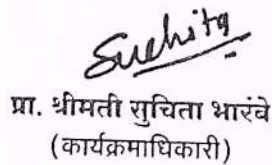 Suchita
प्रा. श्रीमती सुचिता भारंबे
(कार्यक्रमाधिकारी)